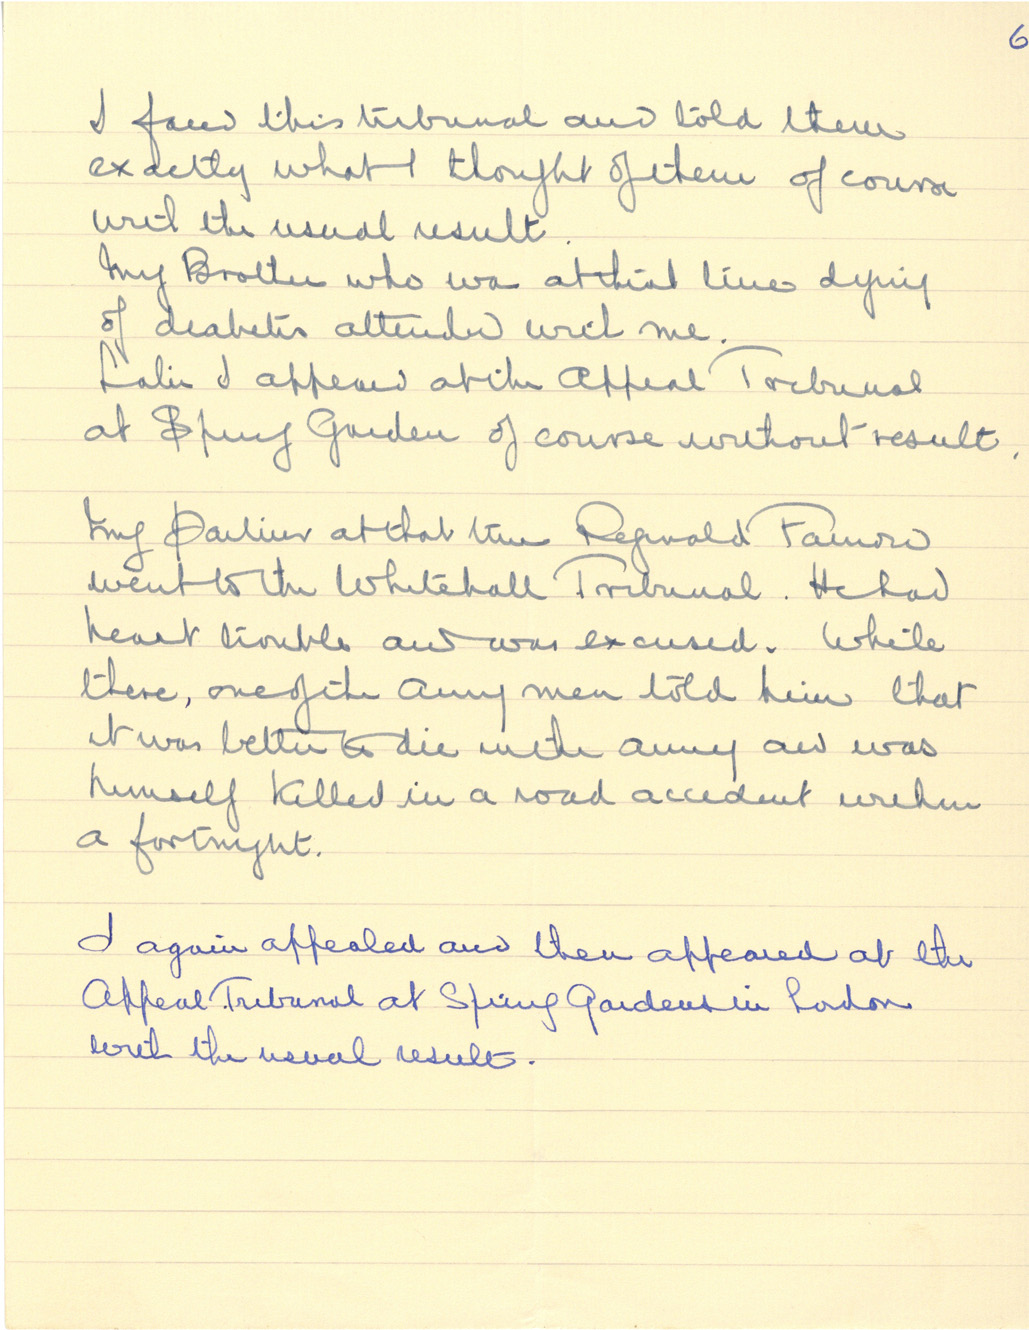 6
I faced this tribunal and told them
exactly what I thought of them of course
with the usual result.
My Brother who was at that time dying
of diabetis attended with me.
Later I appeared at the Appeal Tribunal
at Spring Garden of course without result.
My Partner at that time Reginald
went to the Whitehall Tribunal. He had
heart trouble and was excused. While
there, one of the Army men told him that
it was better to die in the army and was
himself killed in a road accident within
a fortnight.
I again appealed and then appeared at the
Appeal Tribunal at Spring Gardens in London
with the usual result.